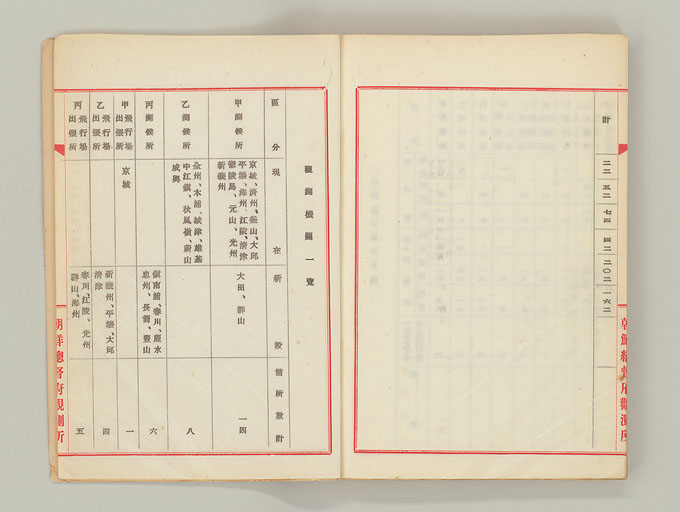 朝鮮總督府觀測所
計 二二 五二 七四 四二 二〇二 一六二
觀測機關一覽
區分 現在 新設 箇所數計
甲測候所
京城、濟州、釜山、大邱
平壤、海州、江陵、清津
鬱陵島、元山、光州
新義州
大田、群山
一四
乙測候所
全州、木浦、城津、雄基
中江鎭、秋風嶺、蔚山
咸興
八
丙測候所
鎭南浦、春川、麗水
忠州、長箭、
六
甲飛行場
出張所
京城
一
乙飛行場
出張所
新義州、平壤、大邱
清津
四
丙飛行場
出張所
春川、江陵、光州
群山、海州
五
朝鮮總督府觀測所